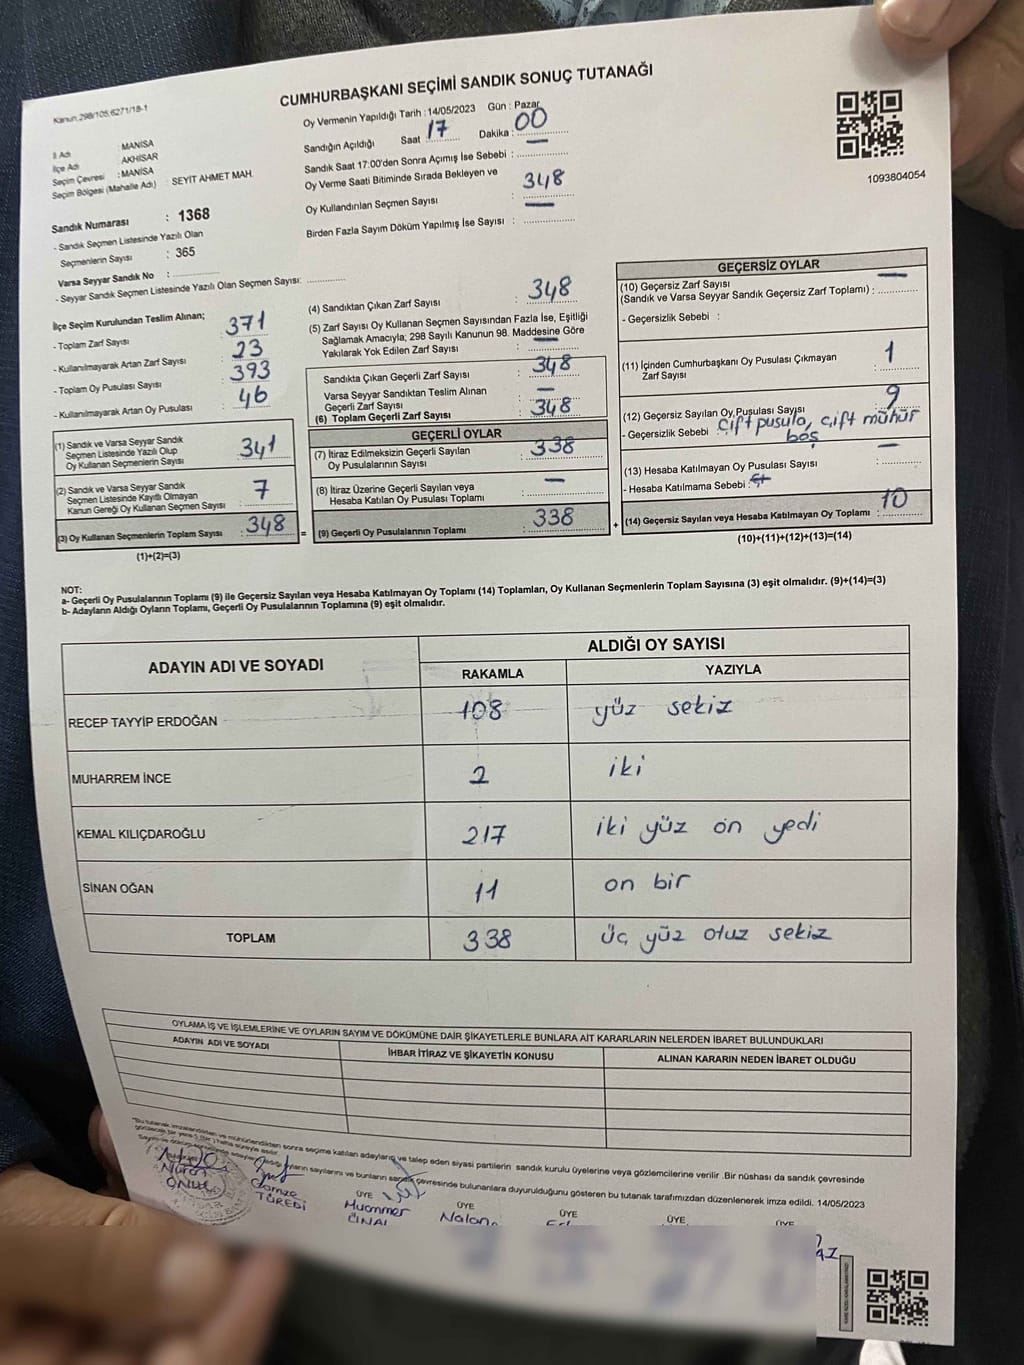 Kanun:298/105;6271/18-1
CUMHURBAŞKANI SEÇİMİ SANDIK SONUÇ TUTANAĞI
İl Adı : MANİSA
İlçe Adı : AKHİSAR
Seçim Çevresi : MANİSA
Seçim Bölgesi (Mahalle Adı) : SEYİT AHMET MAH.
Sandık Numarası : 1368
- Sandık Seçmen Listesinde Yazılı Olan
Seçmenlerin Sayısı : 365
Varsa Seyyar Sandık No : ..............
- Seyyar Sandık Seçmen Listesinde Yazılı Olan Seçmen Sayısı: ..............
Oy Vermenin Yapıldığı Tarih : 14/05/2023 Gün : Pazar
Sandığın Açıldığı Saat 17 Dakika : 00
Sandık Saat 17:00'den Sonra Açımış İse Sebebi : —
Oy Verme Saati Bitiminde Sırada Bekleyen ve
Oy Kullandırılan Seçmen Sayısı : 348
Birden Fazla Sayım Döküm Yapılmış İse Sayısı : —
1093804054
İlçe Seçim Kurulundan Teslim Alınan;
- Toplam Zarf Sayısı : 371
- Kullanılmayarak Artan Zarf Sayısı : 23
- Toplam Oy Pusulası Sayısı : 393
- Kullanılmayarak Artan Oy Pusulası : 46
(1) Sandık ve Varsa Seyyar Sandık
Seçmen Listesinde Yazılı Olup
Oy Kullanan Seçmenlerin Sayısı : 341
(2) Sandık ve Varsa Seyyar Sandık
Seçmen Listesinde Kayıtlı Olmayan
Kanun Gereği Oy Kullanan Seçmen Sayısı : 7
(3) Oy Kullanan Seçmenlerin Toplam Sayısı : 348
(1)+(2)=(3)
(4) Sandıktan Çıkan Zarf Sayısı : 348
(5) Zarf Sayısı Oy Kullanan Seçmen Sayısından Fazla İse, Eşitliği
Sağlamak Amacıyla; 298 Sayılı Kanunun 98. Maddesine Göre
Yakılarak Yok Edilen Zarf Sayısı : —
Sandıkta Çıkan Geçerli Zarf Sayısı : 348
Varsa Seyyar Sandıktan Teslim Alınan
Geçerli Zarf Sayısı : —
(6) Toplam Geçerli Zarf Sayısı : 348
GEÇERLİ OYLAR
(7) İtiraz Edilmeksizin Geçerli Sayılan
Oy Pusulalarının Sayısı : 338
(8) İtiraz Üzerine Geçerli Sayılan veya
Hesaba Katılan Oy Pusulası Toplamı : —
= (9) Geçerli Oy Pusulalarının Toplamı : 338
GEÇERSİZ OYLAR
(10) Geçersiz Zarf Sayısı
(Sandık ve Varsa Seyyar Sandık Geçersiz Zarf Toplamı) : —
- Geçersizlik Sebebi :
(11) İçinden Cumhurbaşkanı Oy Pusulası Çıkmayan
Zarf Sayısı : 1
(12) Geçersiz Sayılan Oy Pusulası Sayısı : 9
- Geçersizlik Sebebi : çift pusula, çift mühür
boş
(13) Hesaba Katılmayan Oy Pusulası Sayısı : —
- Hesaba Katılmama Sebebi :
+ (14) Geçersiz Sayılan veya Hesaba Katılmayan Oy Toplamı : 10
(10)+(11)+(12)+(13)=(14)
NOT:
a- Geçerli Oy Pusulalarının Toplamı (9) ile Geçersiz Sayılan veya Hesaba Katılmayan Oy Toplamı (14) Toplamları, Oy Kullanan Seçmenlerin Toplam Sayısına (3) eşit olmalıdır. (9)+(14)=(3)
b- Adayların Aldığı Oyların Toplamı, Geçerli Oy Pusulalarının Toplamına (9) eşit olmalıdır.
ADAYIN ADI VE SOYADI ALDIĞI OY SAYISI
RAKAMLA YAZIYLA
RECEP TAYYİP ERDOĞAN 108 yüz sekiz
MUHARREM İNCE 2 iki
KEMAL KILIÇDAROĞLU 217 iki yüz on yedi
SİNAN OĞAN 11 on bir
TOPLAM 338 üç yüz otuz sekiz
OYLAMA İŞ VE İŞLEMLERİNE VE OYLARIN SAYIM VE DÖKÜMÜNE DAİR ŞİKAYETLERLE BUNLARA AİT KARARLARIN NELERDEN İBARET BULUNDUKLARI
ADAYIN ADI VE SOYADI İHBAR İTİRAZ VE ŞİKAYETİN KONUSU ALINAN KARARIN NEDEN İBARET OLDUĞU
"Bu tutanak imzalandıktan ve mühürlendikten sonra seçime katılan adayların ve talep eden siyasi partilerin sandık kurulu üyelerine veya gözlemcilerine verilir .Bir nüshası da sandık çevresinde
oyların sayılarını ve bunların sandık çevresinde bulunanlara duyurulduğunu gösteren bu tutanak tarafımızdan düzenlenerek imza edildi. 14/05/2023
ÜYE ÜYE ÜYE ÜYE ÜYE
Gamze Muammer Nalan
TÜREDİ